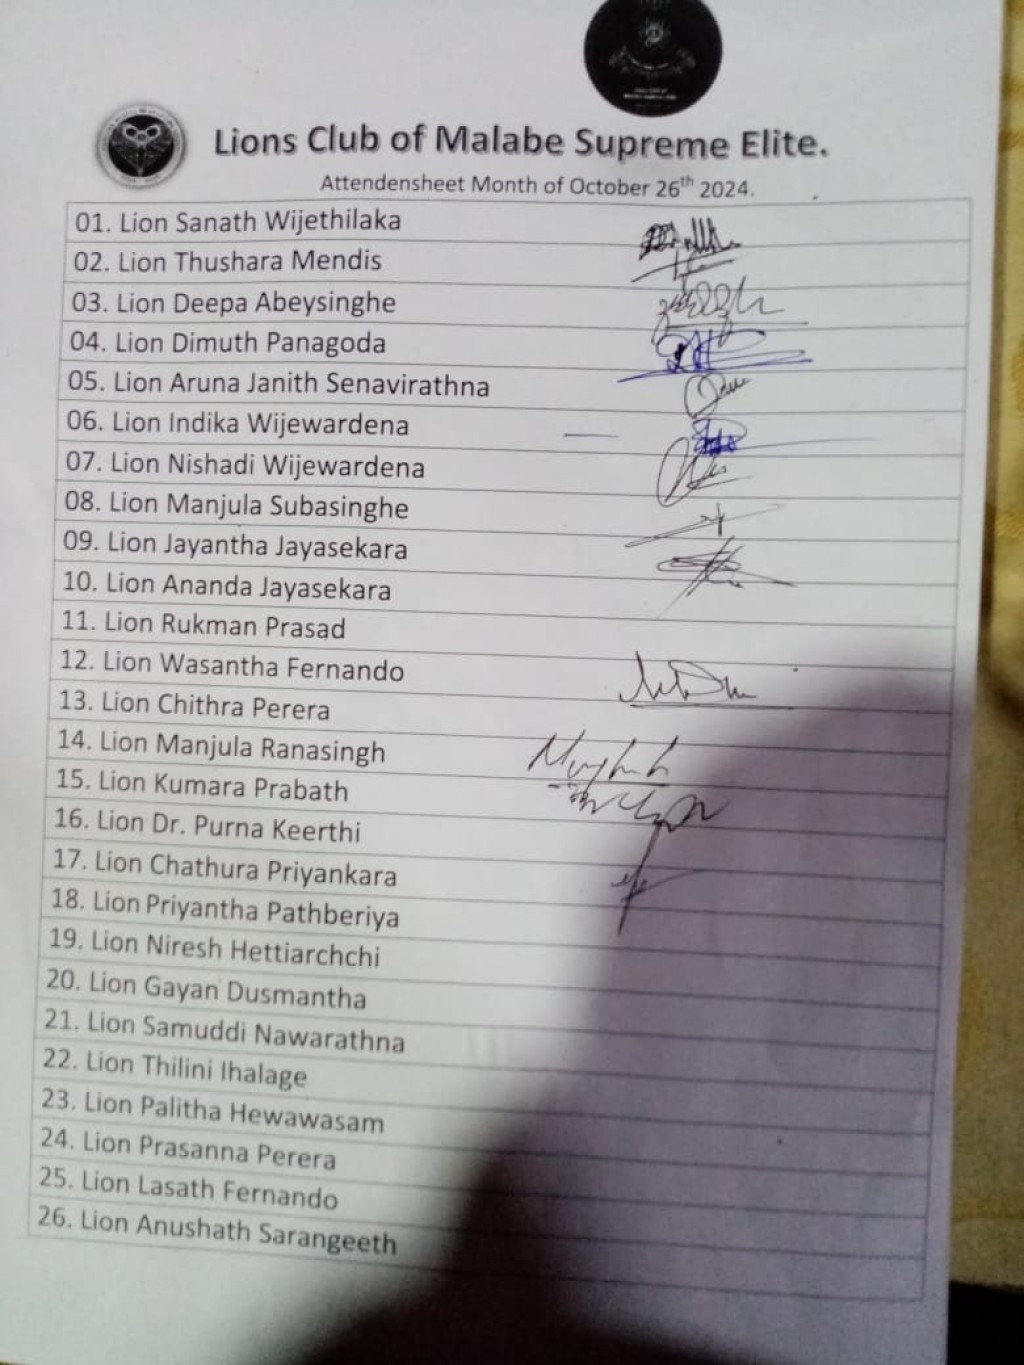 Lions Club of Malabe Supreme Elite.
Attendensheet Month of October 26th 2024.
01. Lion Sanath Wijethilaka
02. Lion Thushara Mendis
03. Lion Deepa Abeysinghe
04. Lion Dimuth Panagoda
05. Lion Aruna Janith Senavirathna
06. Lion Indika Wijewardena
07. Lion Nishadi Wijewardena
08. Lion Manjula Subasinghe
09. Lion Jayantha Jayasekara
10. Lion Ananda Jayasekara
11. Lion Rukman Prasad
12. Lion Wasantha Fernando
13. Lion Chithra Perera
14. Lion Manjula Ranasingh
15. Lion Kumara Prabath
16. Lion Dr. Purna Keerthi
17. Lion Chathura Priyankara
18. Lion Priyantha Pathberiya
19. Lion Niresh Hettiarchchi
20. Lion Gayan Dusmantha
21. Lion Samuddi Nawarathna
22. Lion Thilini Ihalage
23. Lion Palitha Hewawasam
24. Lion Prasanna Perera
25. Lion Lasath Fernando
26. Lion Anushath Sarangeeth